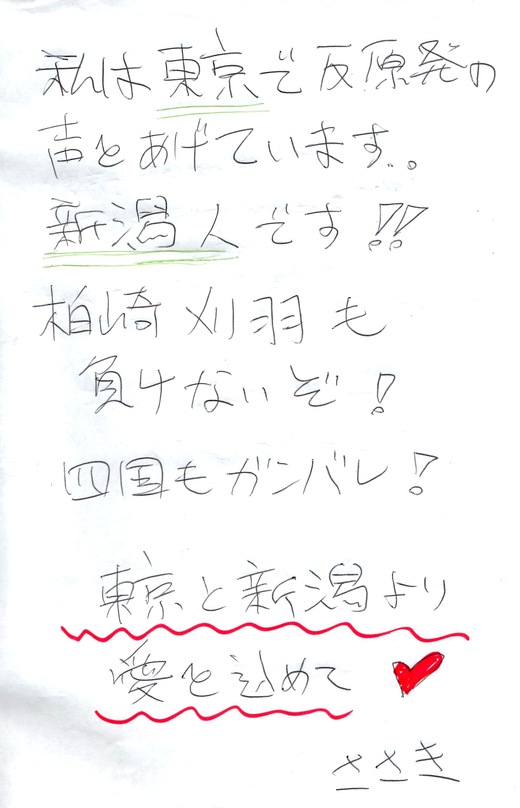 私は東京で反原発の
声をあげています。
新潟人です!!
柏崎刈羽も
負けないぞ!
四国もガンバレ!
東京と新潟より
愛を込めて
ささき